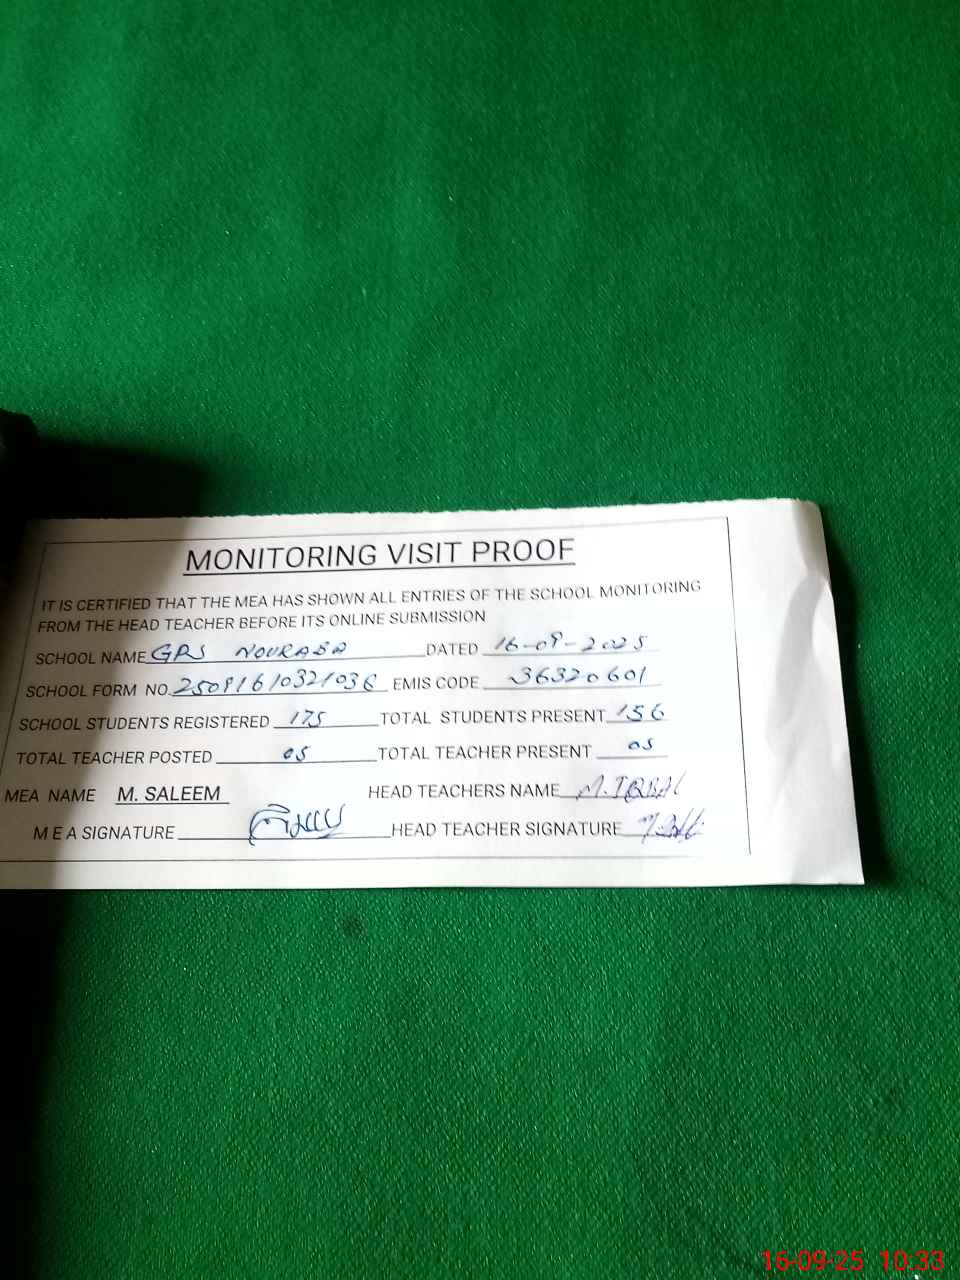 MONITORING VISIT PROOF
IT IS CERTIFIED THAT THE MEA HAS SHOWN ALL ENTRIES OF THE SCHOOL MONITORING
FROM THE HEAD TEACHER BEFORE ITS ONLINE SUBMISSION
SCHOOL NAME GPS NOURABA DATED 16-09-2025
SCHOOL FORM NO. 25091610321036 EMIS CODE 36320601
SCHOOL STUDENTS REGISTERED 175 TOTAL STUDENTS PRESENT 156
TOTAL TEACHER POSTED 05 TOTAL TEACHER PRESENT 05
MEA NAME M. SALEEM HEAD TEACHERS NAME M. IQBAL
M E A SIGNATURE HEAD TEACHER SIGNATURE
16-09-25 10:33